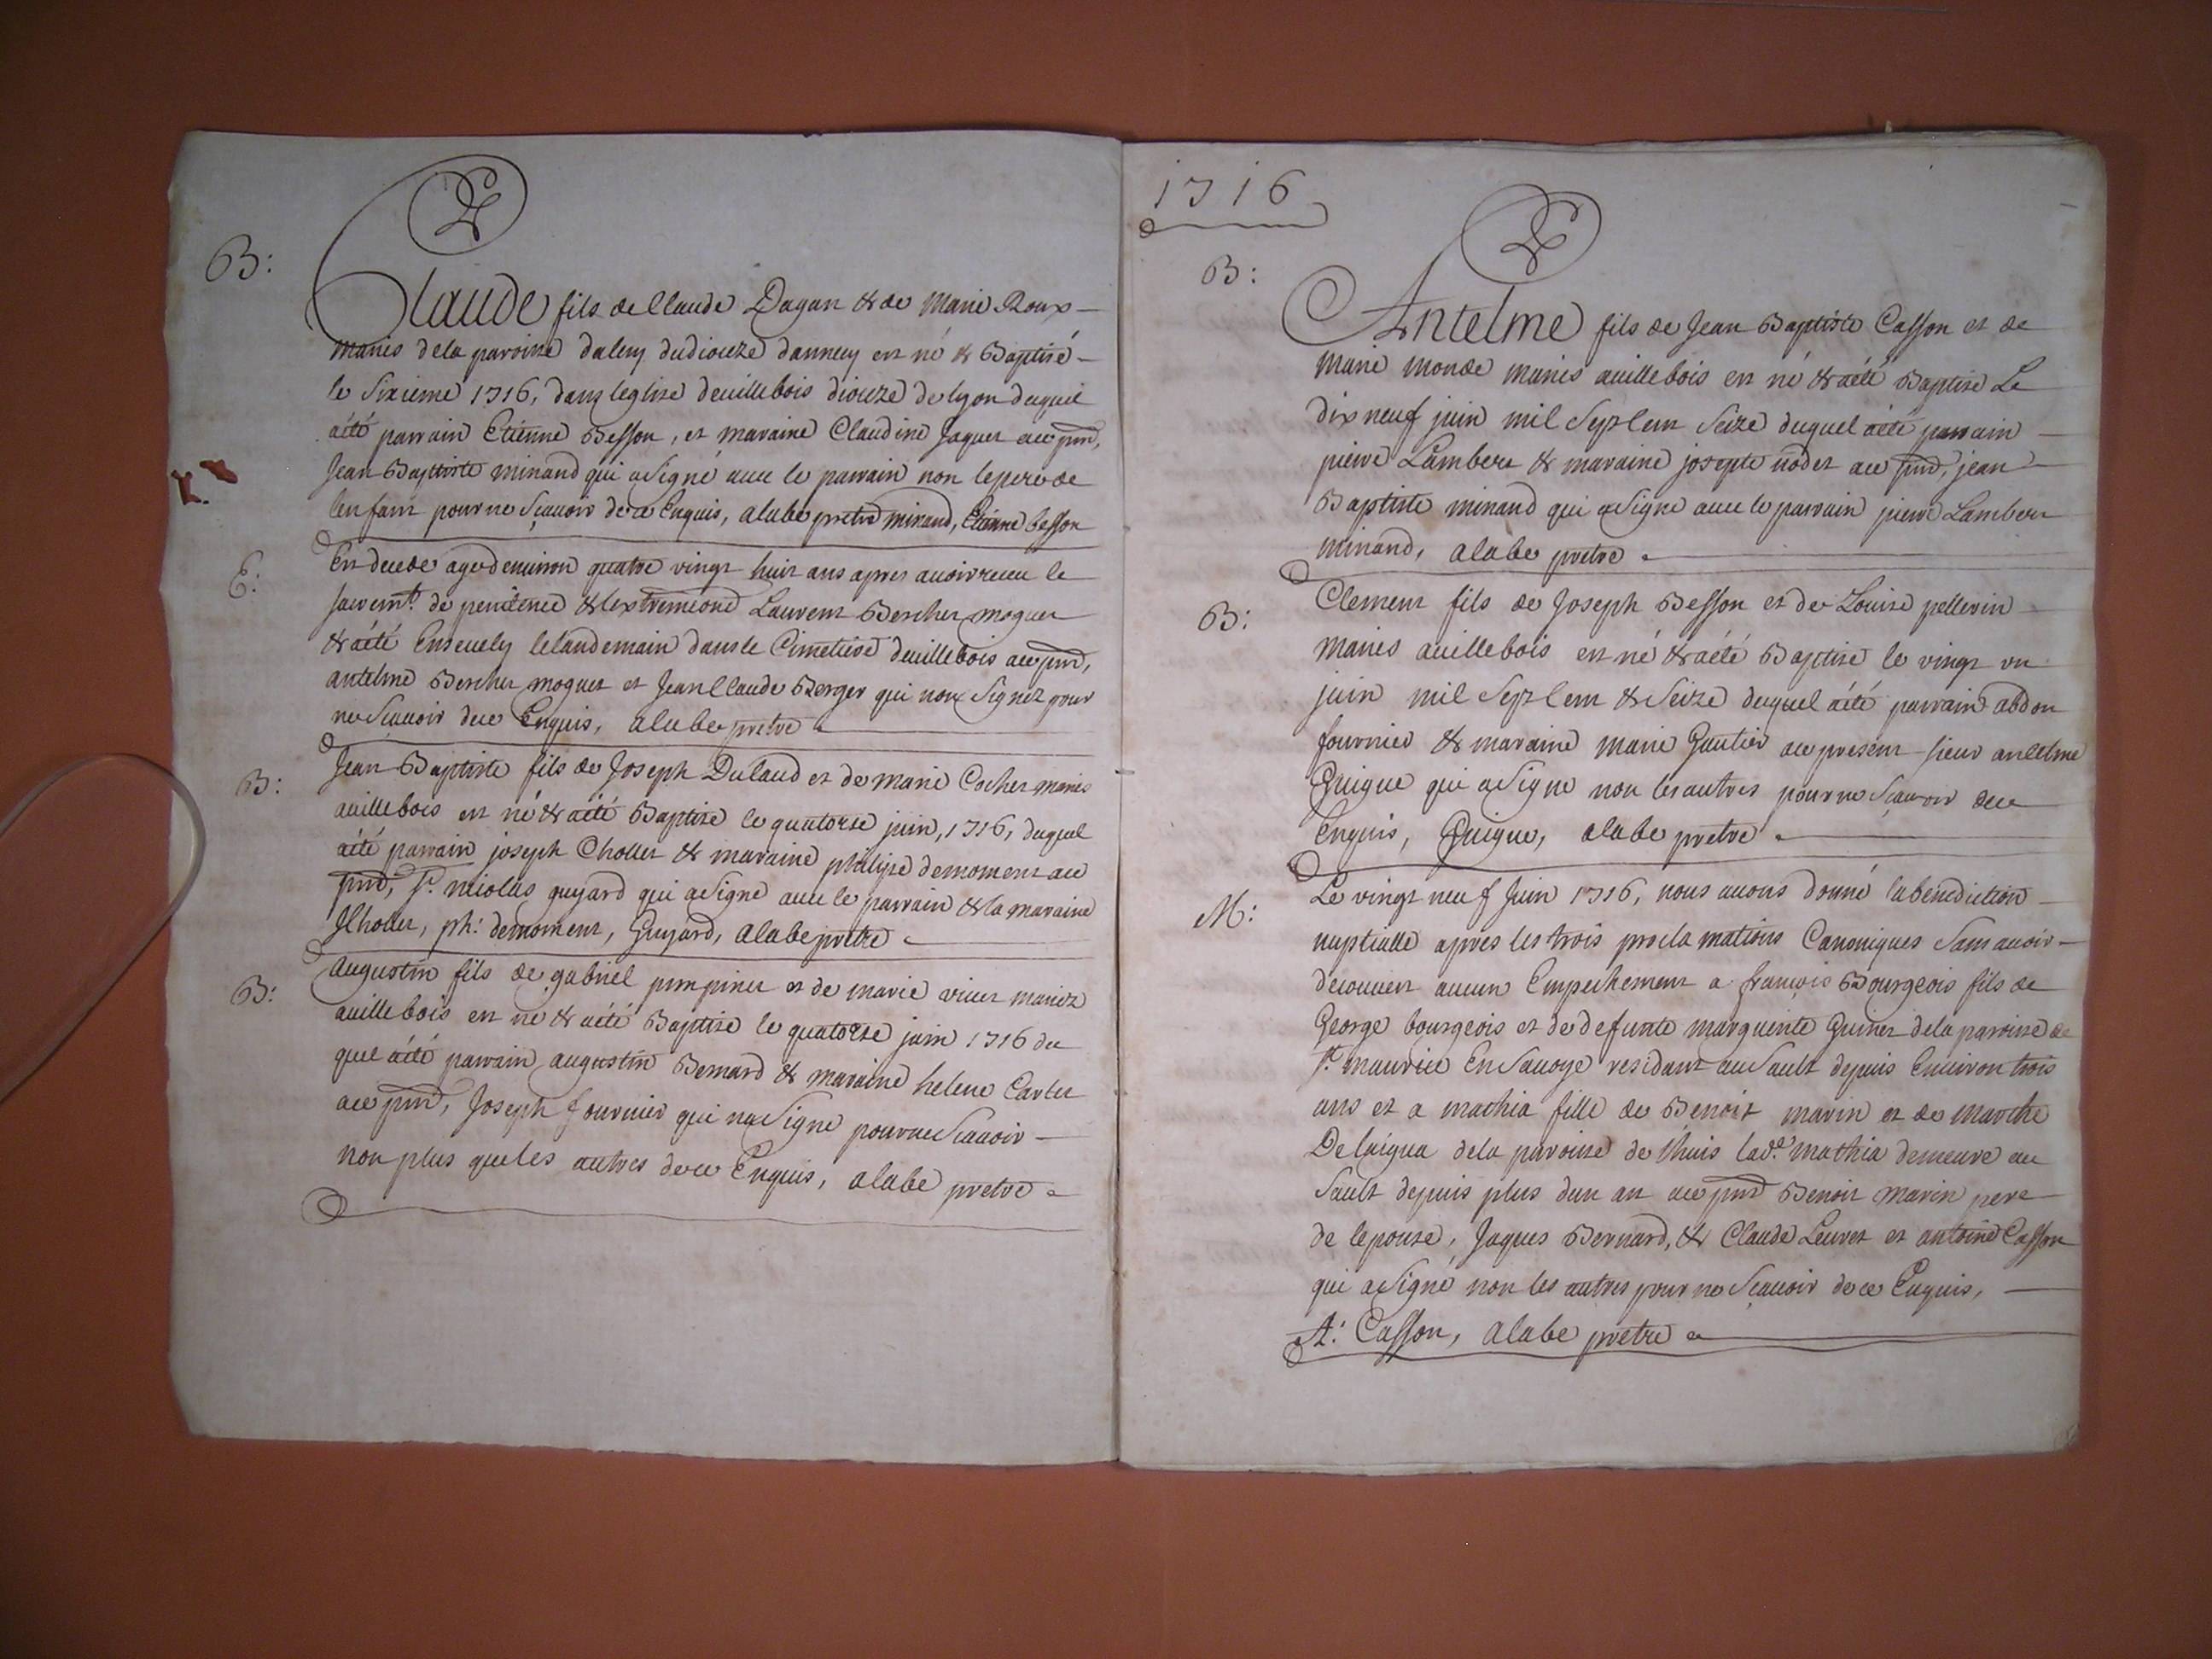 B:
Claude fils de Claude Dagan & de Marie Roux
maries dela paroisse dalery dudioceze dannecy est né & Baptisé
le Sixieme 1716, dans leglise deuillebois dioceze de lyon duquel
aété parrain Etienne Besson, et maraine Claudine Jaquet ace pnt,
Jean Baptiste minand qui asigné auec le parrain non lepere de
lenfant pour ne Scauoir dece Enquis, alabe pretre minand, Etienne besson
E:
Est decede agé denuiron quatre vingt huit ans apres auoir receu le
sacremt. de penitence & lextremeond Laurent Bercher moguet
& aété Enseuely lelandemain dans le Cimetiere deuillebois ace pnt,
antelme Bercher moguet et Jean Claude Berger qui nont Signez pour
ne Scauoir dece Enquis, alabe pretre
B:
Jean Baptiste fils de Joseph Dulaud et de marie Cochet maries
auillebois est né & aété Baptise le quatorse juin, 1716, duquel
aété parrain joseph Chollet & maraine philipe demoment ace
pnt, Sr. nicolas guyard qui asigne auec le parrain & la maraine
JChollet, ph: demoment, Guyard, alabe pretre
B:
augustin fils de gabriel pimpinet et de marie vicet mariez
auillebois est né & aété Baptise le quatorse juin 1716 du
quel aété parrain augustin Bernard & maraine helene Carlet
ace pnt, Joseph fournier qui na Signe pour ne Scauoir
non plus que les autres dece Enquis, alabe pretre
1716
B:
Antelme fils de Jean Baptiste Casson et de
Marie monde maries auillebois est né & aété Baptise Le
dix neuf juin mil Sept cent Seize duquel aété parrain
pierre Lambert & maraine josepte nodet ace pnt, jean
Baptiste minand qui asigne auec le parrain pierre Lambert
minand, alabe pretre
B:
Clement fils de Joseph Besson et de Louise pellerin
maries auillebois est né & aété Baptise le vingt vn
juin mil Sept cent & Seize duquel aété parrain abdon
fournier & maraine marie Gautier ace present sieur anselme
Quigue qui asigne non les autres pour ne Scauoir dece
Enquis, Quigue, alabe pretre
M:
Le vingt neuf Juin 1716, nous auons donné labenediction
nuptialle apres les trois proclamations Canoniques Sans auoir
decouuert aucun Empechement a françois Bourgeois fils de
George bourgeois et de defunte marguerite Guinet dela paroisse de
St. maurice En Sauoye residant au Sault depuis Enuiron trois
ans et a mathia fille de Benoit marin et de marthe
Delaigua dela paroisse de lhuis lade. mathia demeure au
Sault depuis plus dun an ace pnt Benoit marin pere
de lepouse, Jaques Bernard, & Claude Leuret et antoine Casson
qui asigné non les autres pour ne Scauoir dece Enquis,
At. Casson, alabe pretre